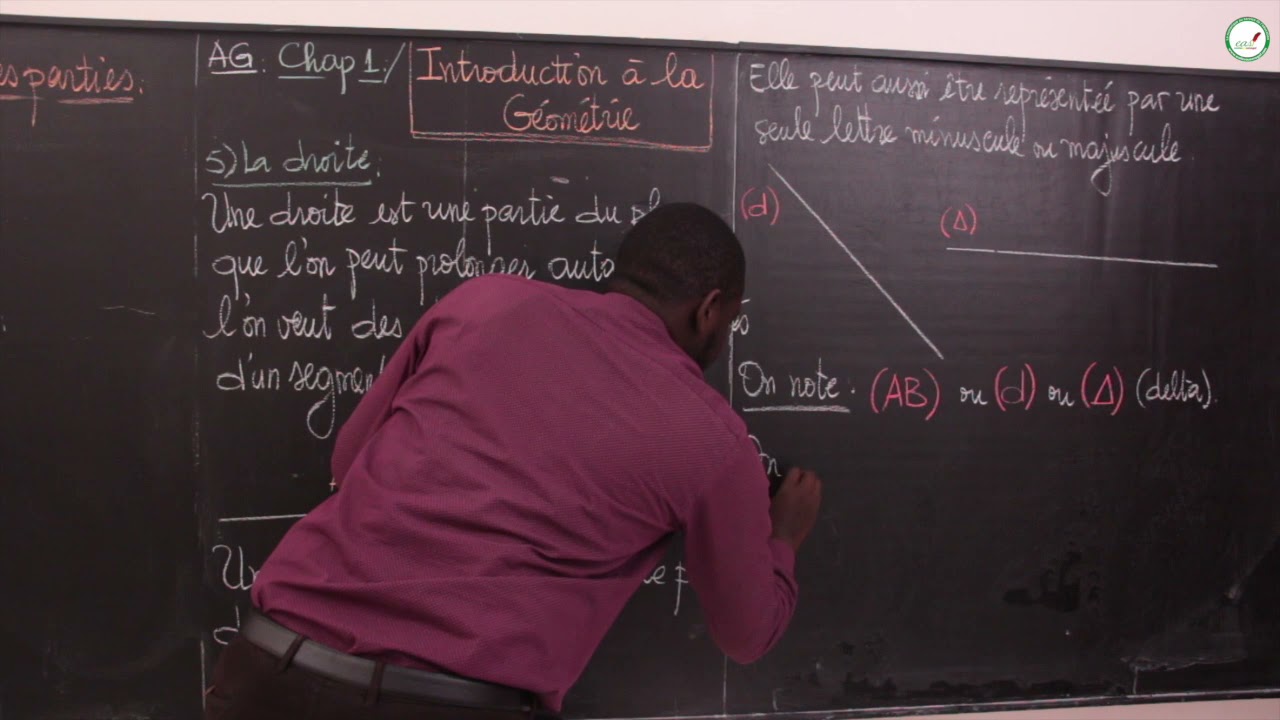 es parties:
AG: Chap 1:/ Introduction à la
Géométrie
5) La droite:
Une droite est une partie du
que l'on peut prolonger
l'on veut des
d'un segment
Elle peut aussi être représentéé par une
seule lettre minuscule ou majuscule.
(d)
(Δ)
On note: (AB) ou (d) ou (Δ) (delta).
On
eas!